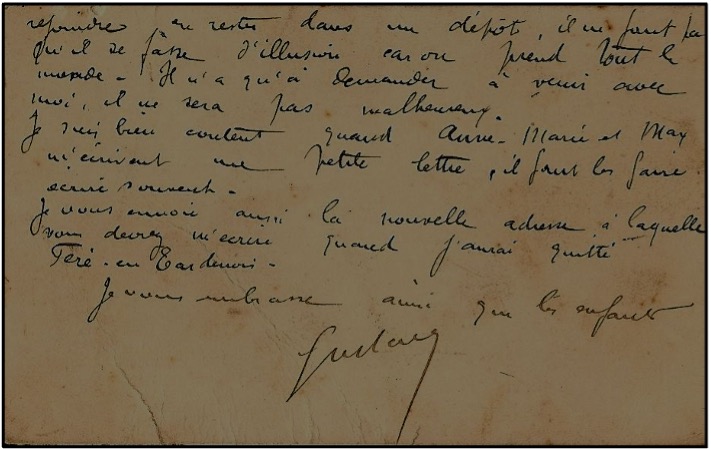 rejoindre en restes dans un dépôt, il ne faut pas
qu'il se fasse d'illusion car on prend tout le
monde - Il n'a qu'à demander à venir avec
moi, il ne sera pas malheureux.
Je suis bien content quand Anne-Marie et Max
m'écrivent une petite lettre, il faut les faire
écrire souvent -
Je vous envoie aussi la nouvelle adresse à laquelle
vous devrez m'écrire quand j'aurai quitté
Fère-en Tardenois -
Je vous embrasse ainsi que les enfants
Gustave